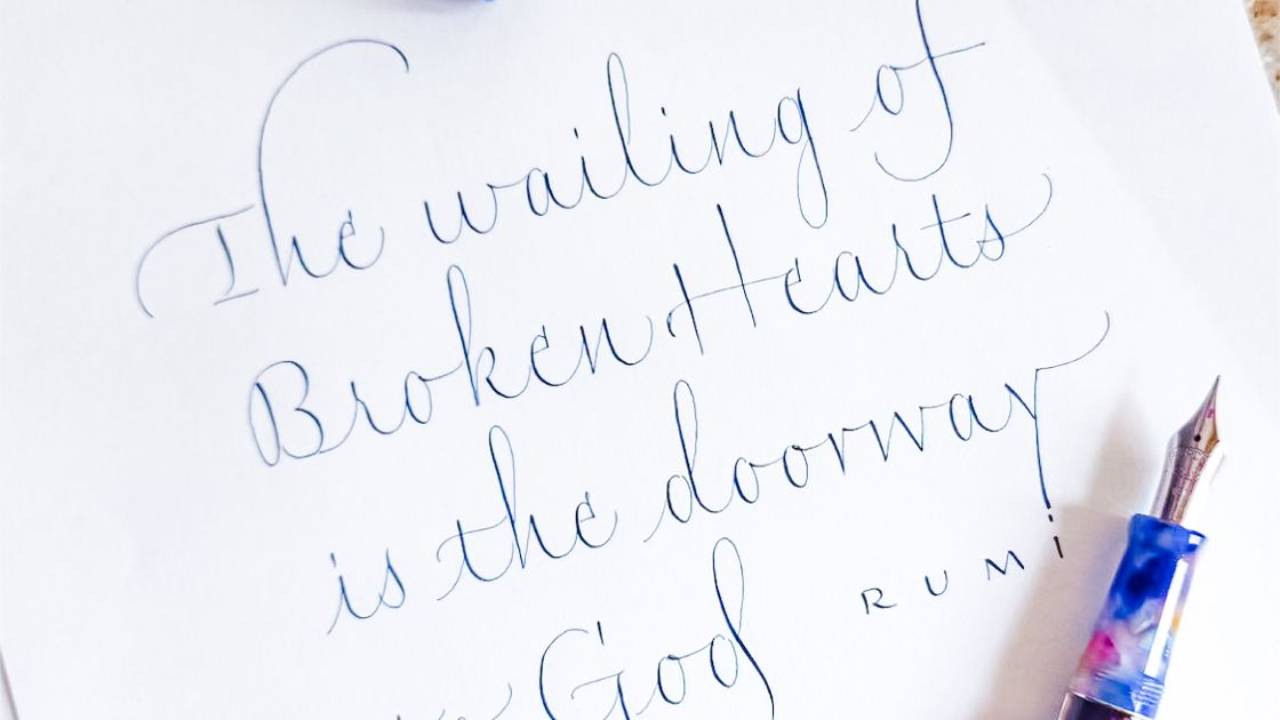 The wailing of
Broken Hearts
is the doorway
God
RUMi